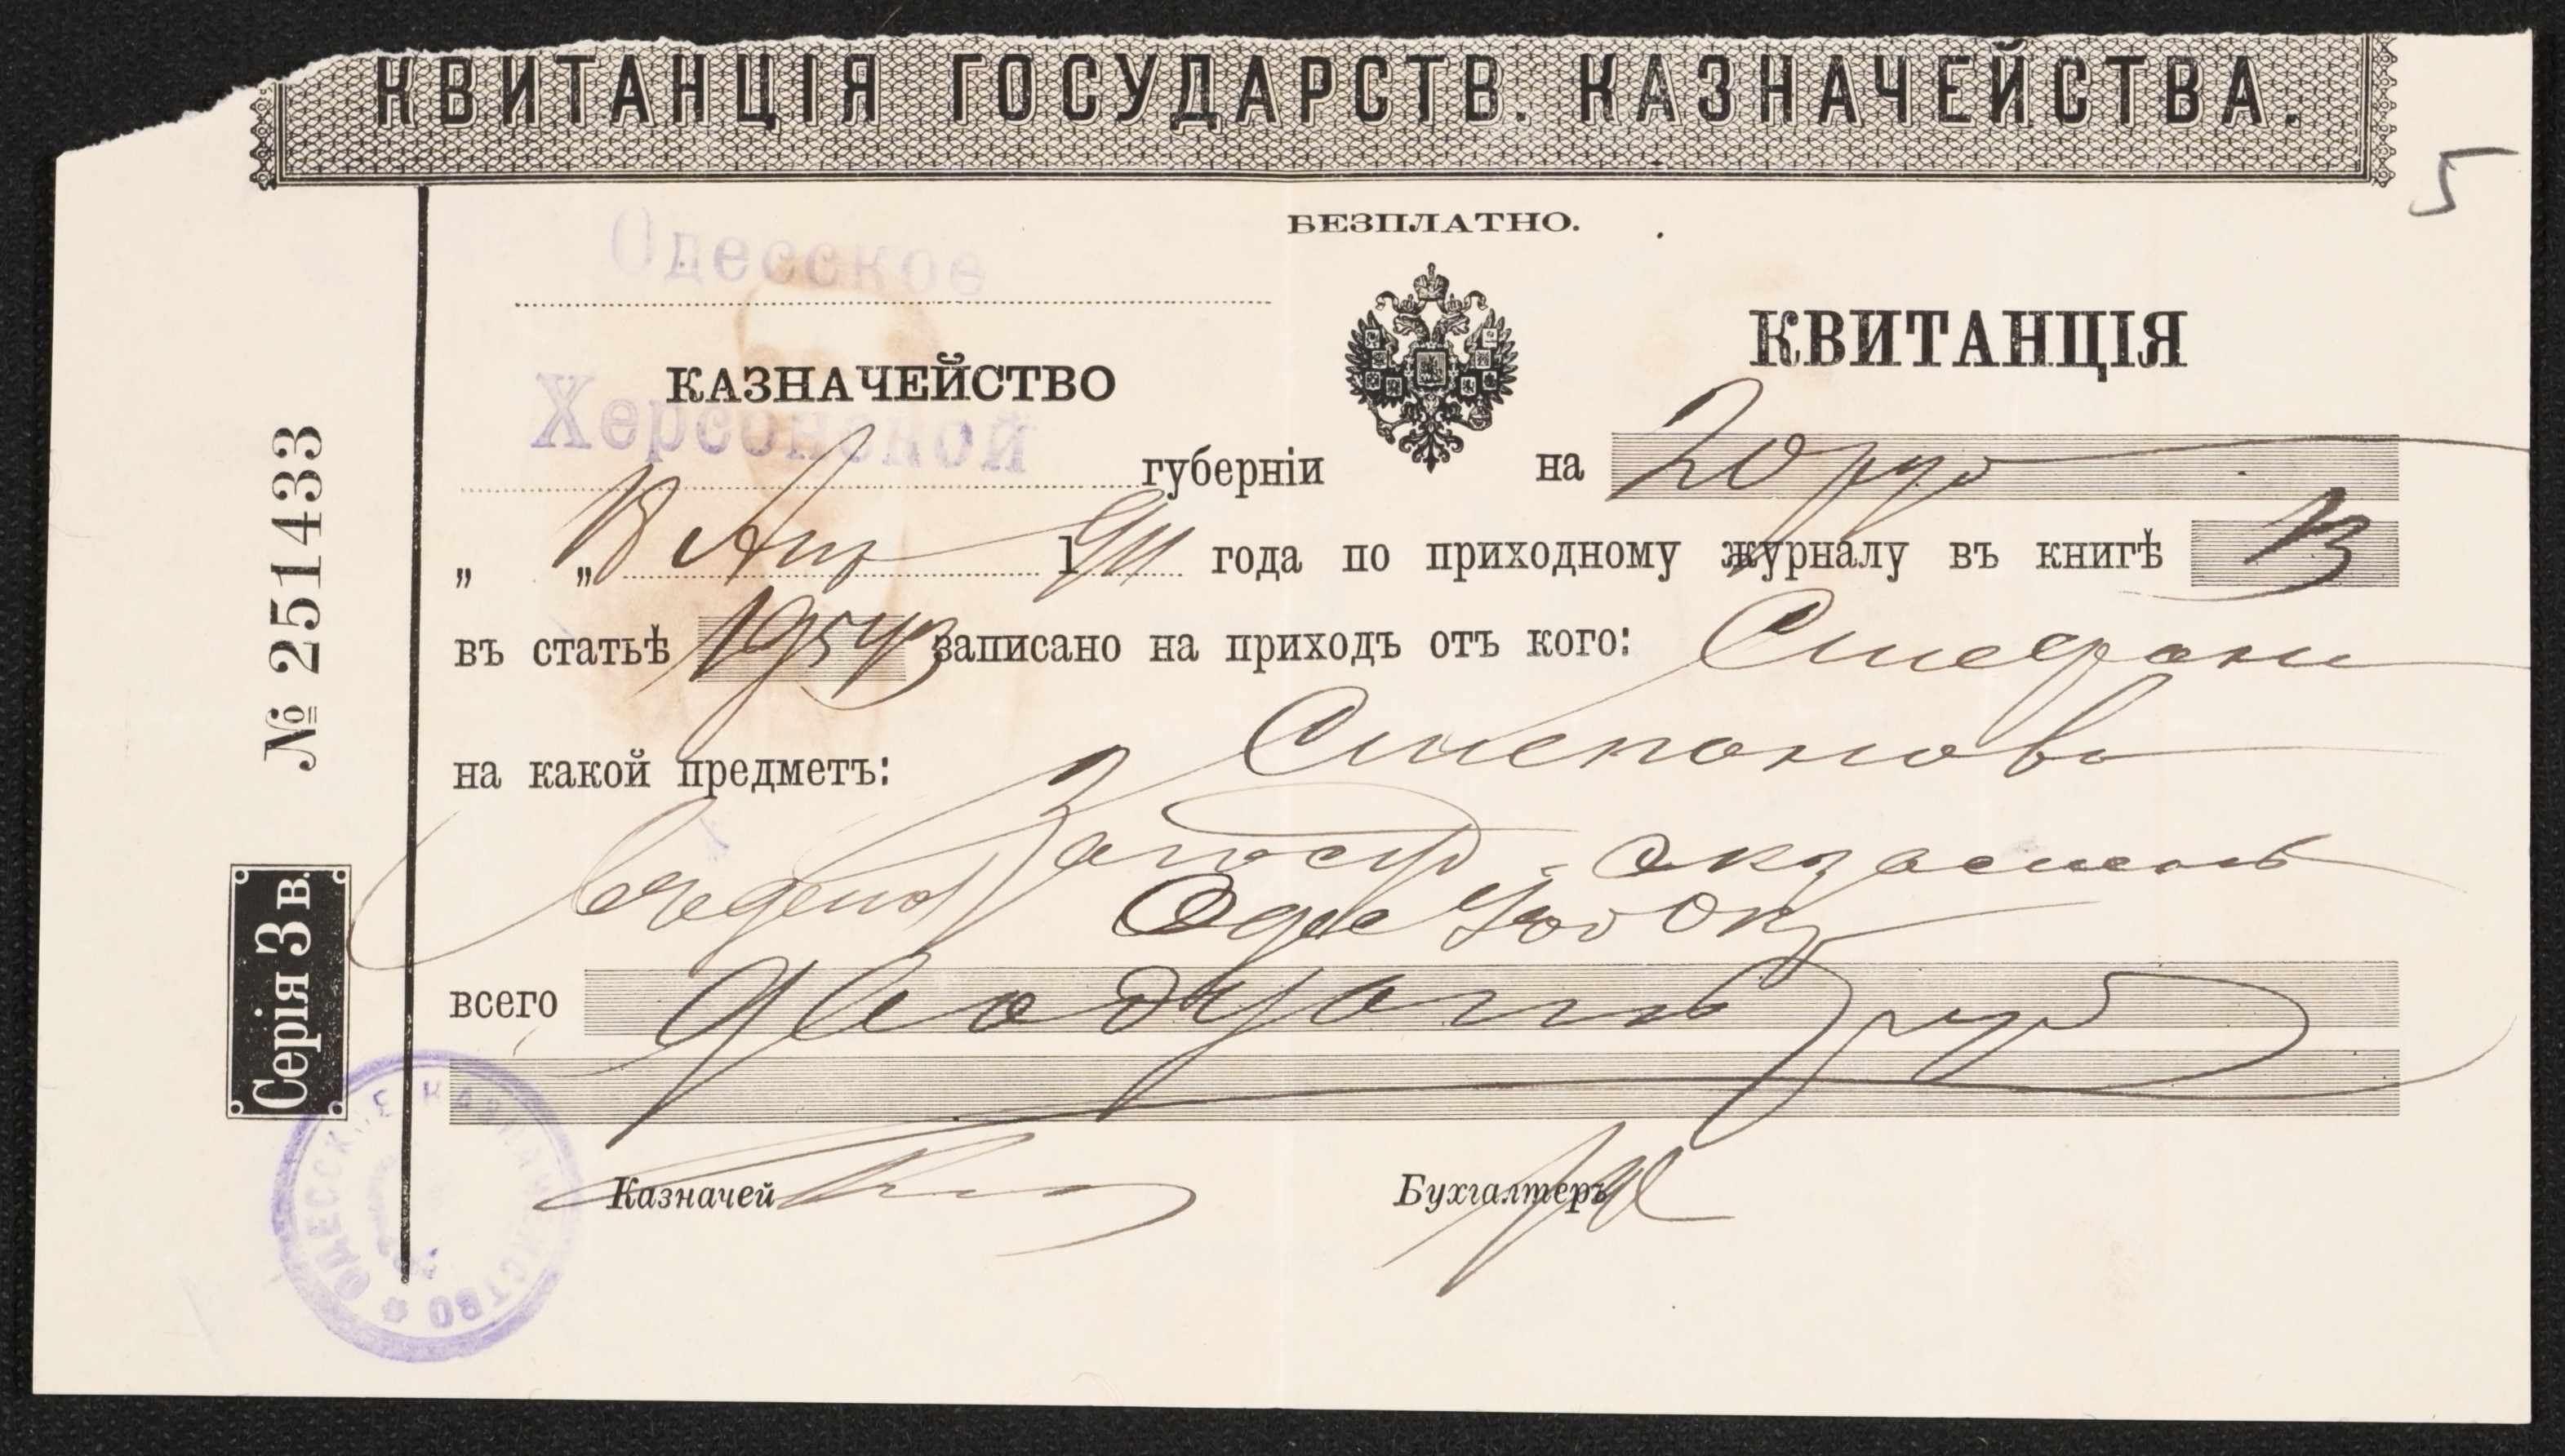 КВИТАНЦІЯ ГОСУДАРСТВ. КАЗНАЧЕЙСТВА.
5
БЕЗПЛАТНО.
Одесское
КАЗНАЧЕЙСТВО
КВИТАНЦІЯ
Херсонской
губерніи
на 20 руб
" " 1911 года по приходному журналу въ книгѣ 13
въ статьѣ 19543 записано на приходъ отъ кого: Стефани
Степанова
на какой предметъ:
экзамень
Оде
всего двадцать руб
Казначей
Бухгалтеръ
№ 251433
Серія 3 в.
ОДЕССКОЕ КАЗНАЧЕЙСТВО